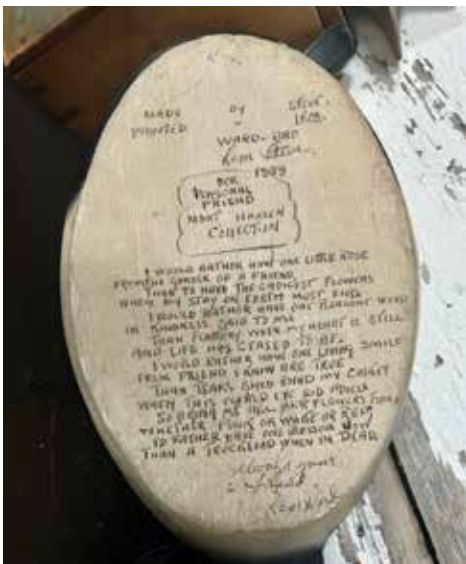 MADE by STEVE.
PAINTED " LEM.
WARD. BRO
1959
FOR
PERSONAL
FRIEND
MORT HANSEN
COLLECTION
I WOULD RATHER HAVE ONE LITTLE ROSE
FROM THE GARDEN OF A FRIEND
THAN TO HAVE THE FLOWERS
WHEN MY STAY ON EARTH MUST END
I WOULD RATHER HAVE ONE PLEASANT WORD
IN KINDNESS SAID TO ME
THAN FLATTERY WHEN MY HEART IS STILL
AND LIFE HAS CEASED TO BE.
I WOULD RATHER HAVE ONE LOVING SMILE
FROM FRIEND I KNOW ARE TRUE
THAN TEARS SHED ROUND MY CASKET
WHEN THIS WORLD I'VE BID
SO BRING ME ALL YOUR FLOWERS TODAY
PINK OR WHITE OR RED
I'D RATHER HAVE ONE BLOSSOM NOW
THAN A TRUCKLOAD WHEN I'M DEAD